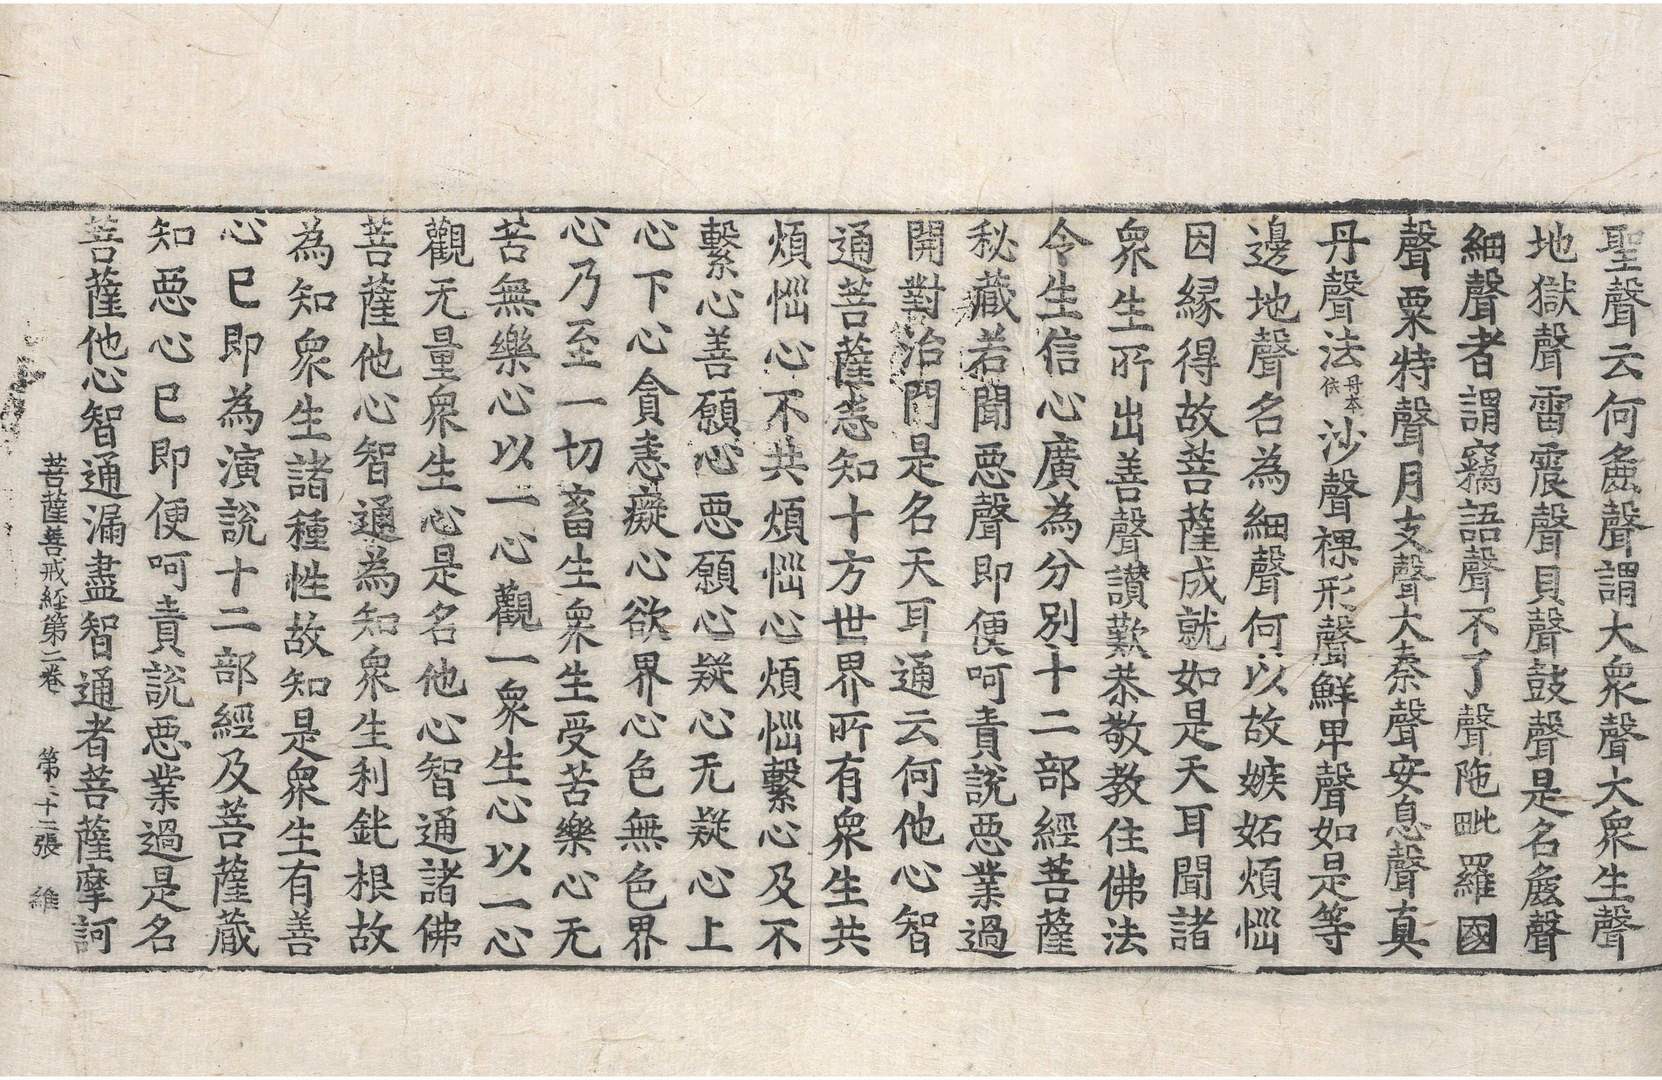 聖聲云何麁聲謂大衆聲大衆生聲
地獄聲雷震聲貝聲鼓聲是名麁聲
細聲者謂竊語聲不了聲陁毗羅國
聲粟特聲月支聲大秦聲安息聲真
丹聲法丹本依沙聲裸形聲鮮卑聲如是等
邊地聲名為細聲何以故嫉妬煩惱
因緣得故菩薩成就如是天耳聞諸
衆生所出善聲讃歎恭敬教住佛法
令生信心廣為分別十二部經菩薩
秘藏若聞惡聲即便呵責說惡業過
開對治門是名天耳通云何他心智
通菩薩悉知十方世界所有衆生共
煩惱心不共煩惱心煩惱繫心及不
繫心善願心惡願心疑心无疑心上
心下心貪恚癡心欲界心色無色界
心乃至一切畜生衆生受苦樂心无
苦無樂心以一心觀一衆生心以一心
觀无量衆生心是名他心智通諸佛
菩薩他心智通為知衆生利鈍根故
為知衆生諸種性故知是衆生有善
心已即為演說十二部經及菩薩藏
知惡心已即便呵責說惡業過是名
菩薩他心智通漏盡智通者菩薩摩訶
菩薩善戒經第二卷 第二十二張 維